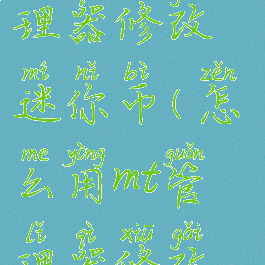 理器修改
mí nǐ bì zěn
迷你币(怎
me yòng guǎn
么用mt管
lǐ qì xiū gǎi
理器修改